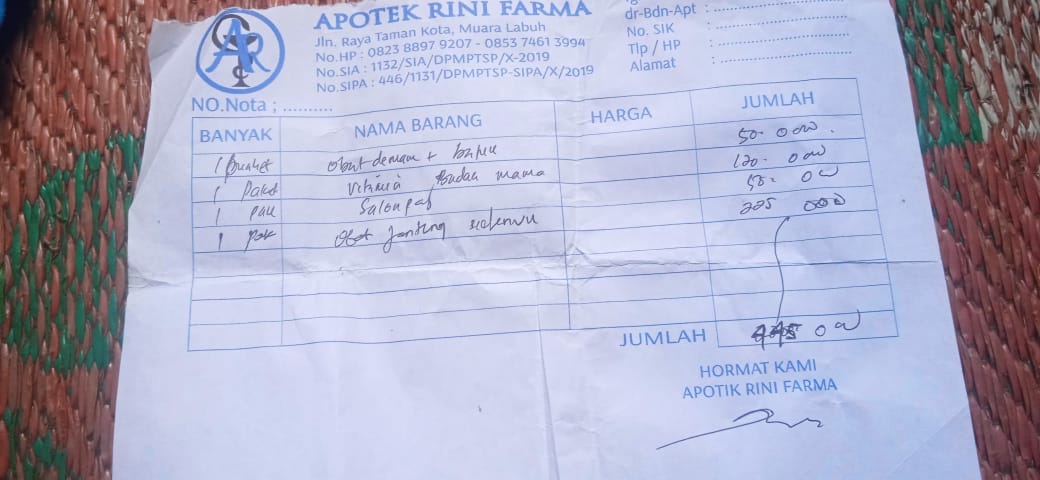 APOTEK RINI FARMA
Jln. Raya Taman Kota, Muara Labuh
No.HP : 0823 8897 9207 - 0853 7461 3994
No.SIA : 1132/SIA/DPMPTSP/X-2019
No.SIPA : 446/1131/DPMPTSP-SIPA/X/2019
dr-Bdn-Apt :
No. SIK :
Tlp / HP :
Alamat :
NO.Nota ; ..........
BANYAK NAMA BARANG HARGA JUMLAH
1 Obat demam + 50.000
1 Paket 120.000
1 Salonpas 50.000
1 pak Obat jantung 225 000
JUMLAH 445 000
HORMAT KAMI
APOTIK RINI FARMA